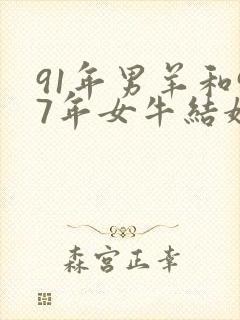 91年男羊和9
7年女牛結婚
森宮正幸